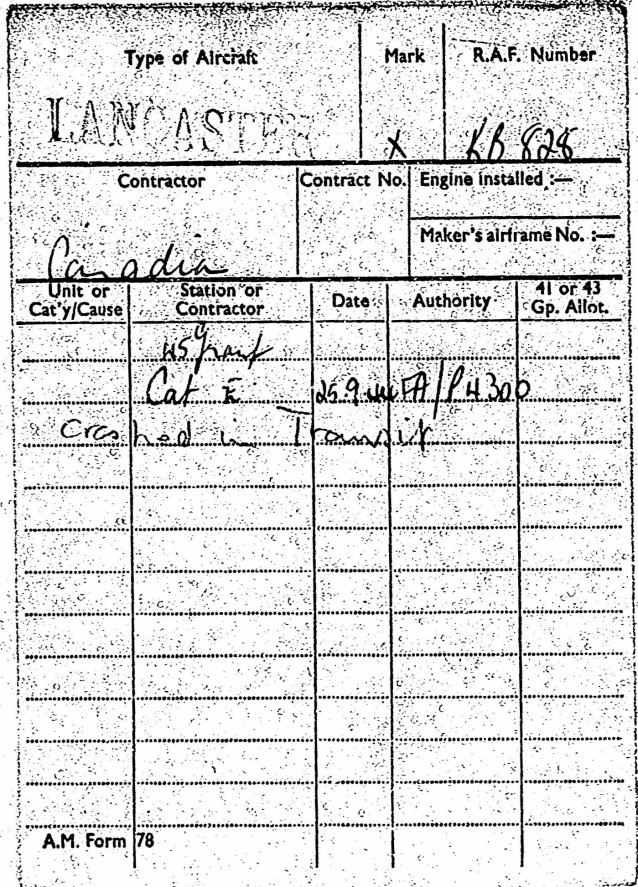 Type of Aircraft Mark R.A.F. Number
LANCASTER X KB 828
Contractor Contract No. Engine installed :—
Maker's airframe No. :—
Canadian
Unit or Cat'y/Cause Station or Contractor Date Authority 41 or 43 Gp. Allot.
Cat E 25.9.44 FA/P4300
Crashed in Transit
A.M. Form 78